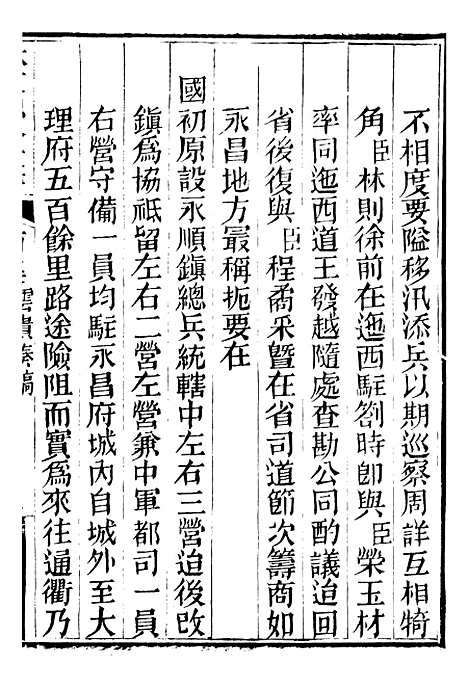 不相度要隘移汛添兵以期巡察周詳互相犄
角臣林則徐前在迤西駐劄時即與臣榮玉材
率同迤西道王發越隨處查勘公同酌議迨回
省後復與臣程矞采暨在省司道節次籌商如
永昌地方最稱扼要在
國初原設永順鎮總兵統轄中左右三營迨後改
鎮爲協祇留左右二營左營兼中軍都司一員
右營守備一員均駐永昌府城內自城外至大
理府五百餘里路途險阻而實爲來往通衢乃
雲貴奏稿